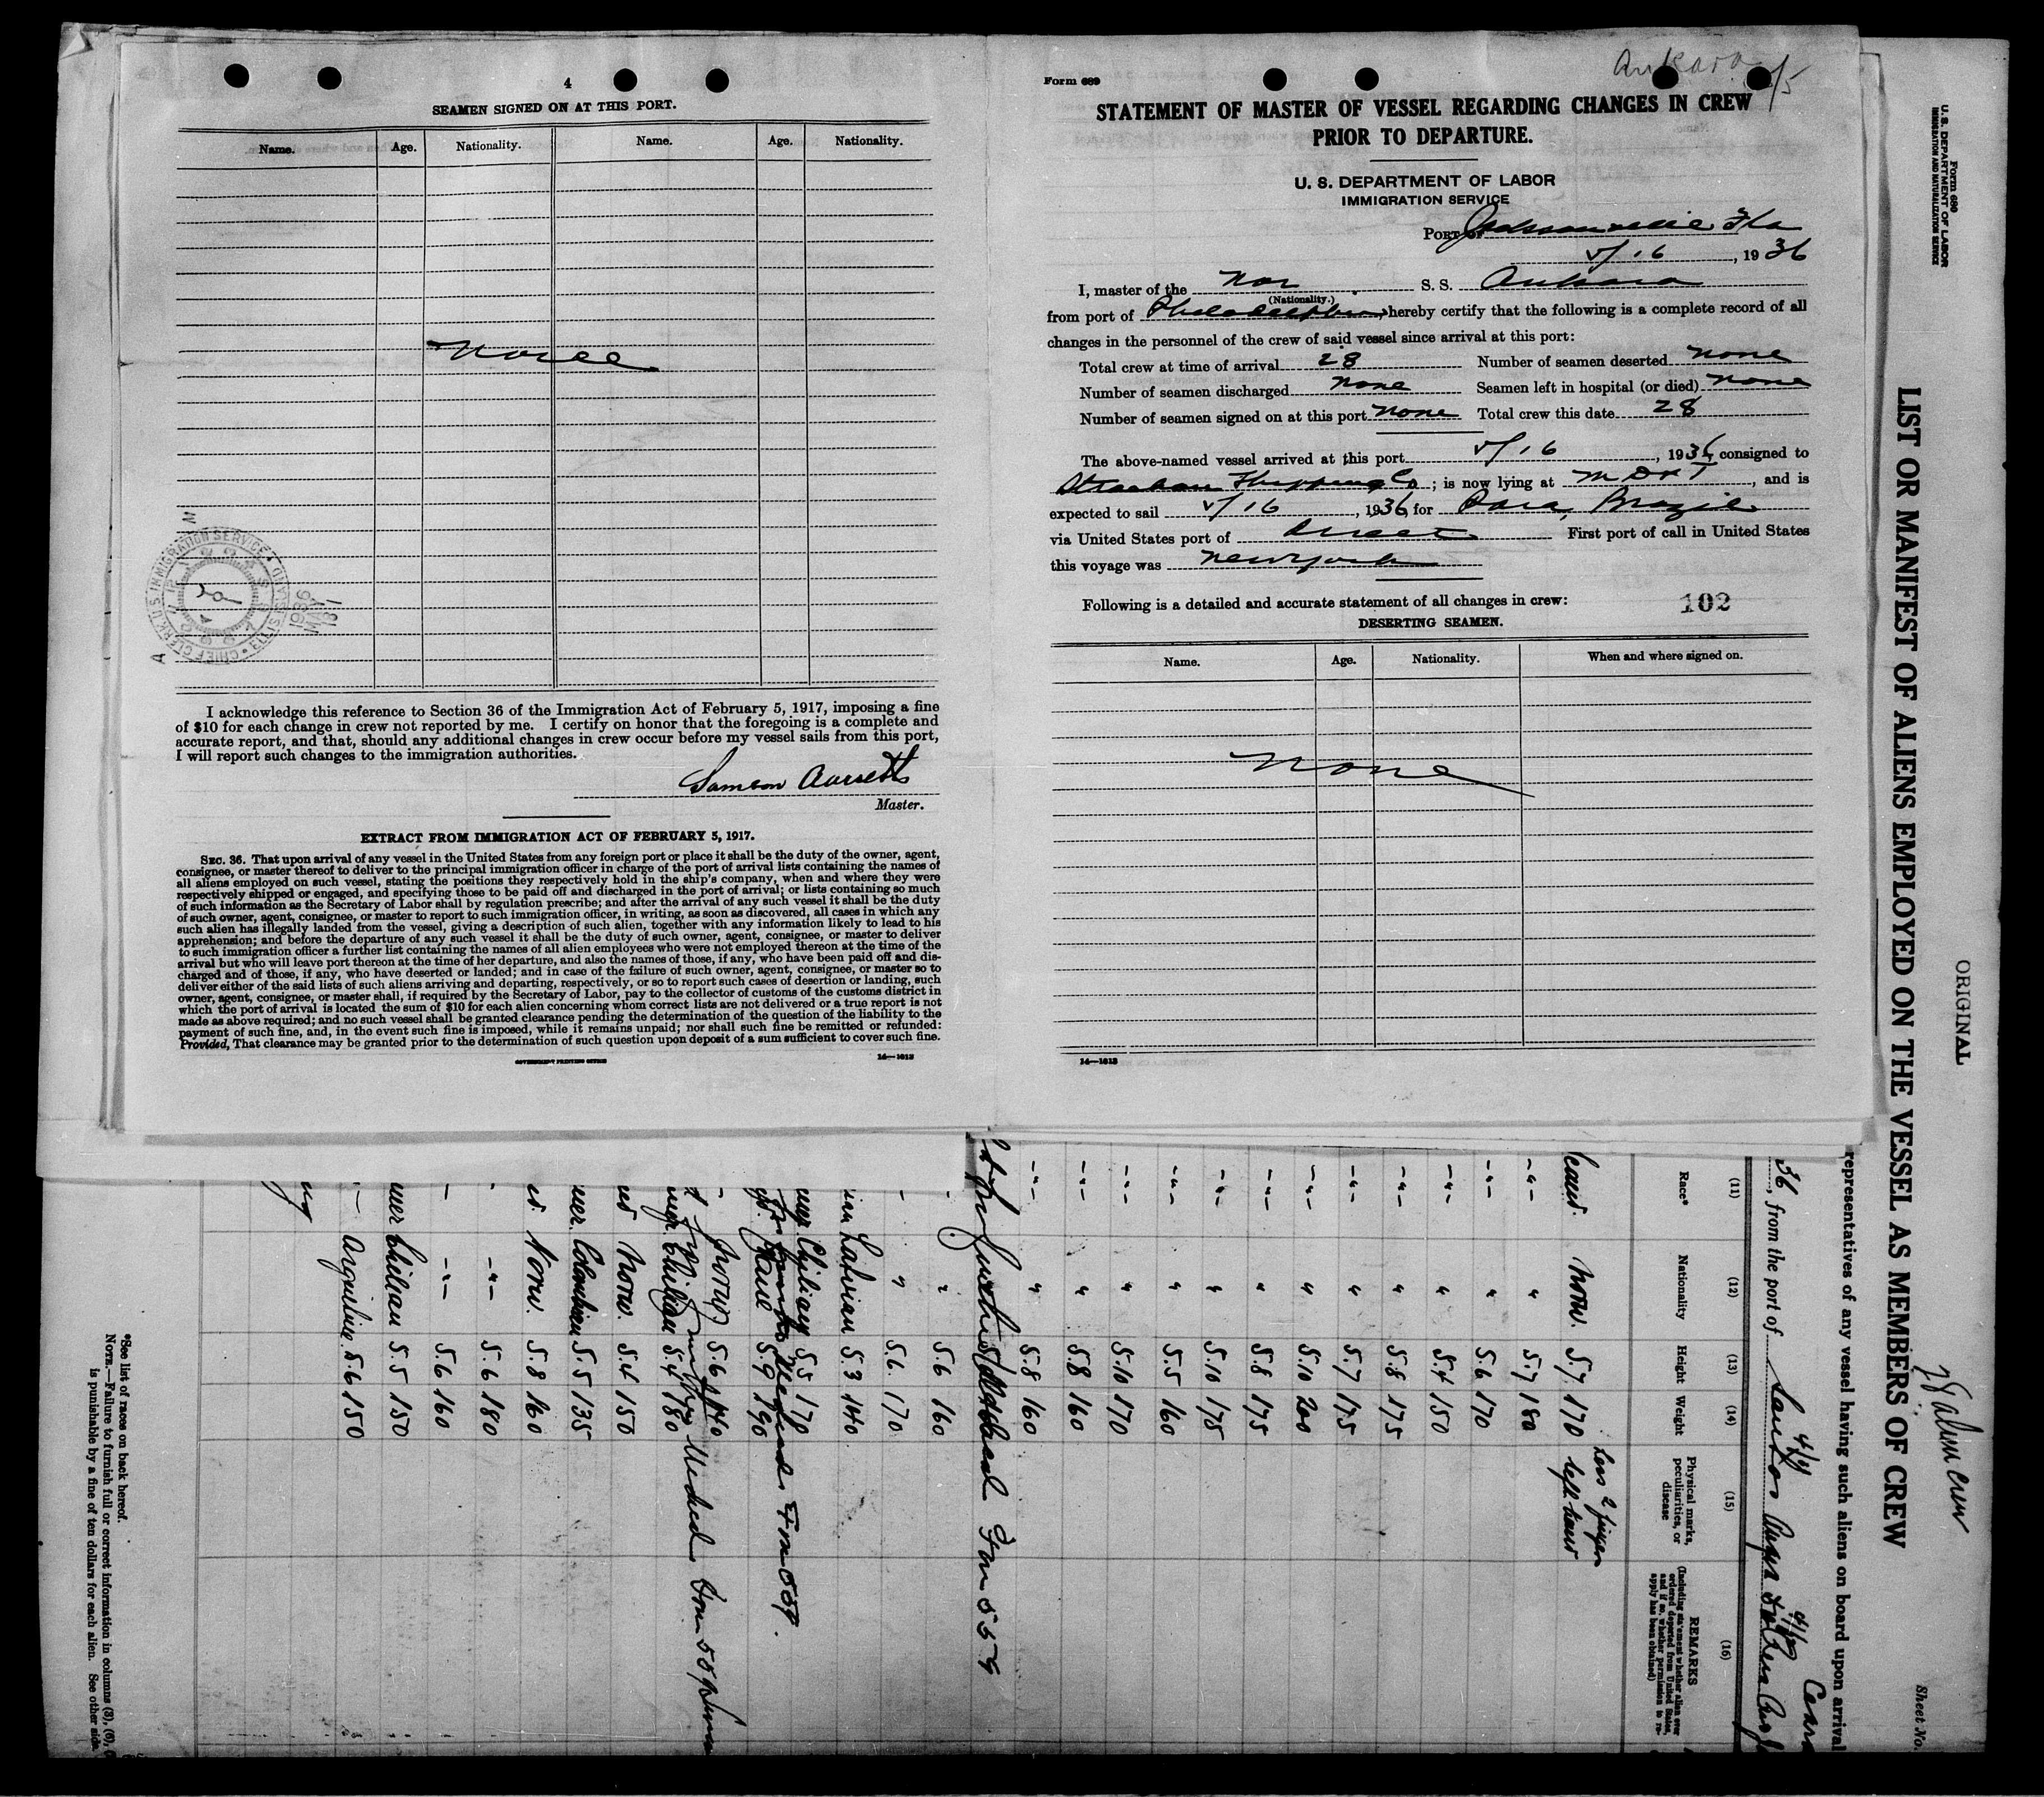 4
SEAMEN SIGNED ON AT THIS PORT.
Name. Age. Nationality. Name. Age. Nationality.
None
CHIEF CLERK U.S. IMMIGRATION SERVICE
1936
MAY
I acknowledge this reference to Section 36 of the Immigration Act of February 5, 1917, imposing a fine
of $10 for each change in crew not reported by me. I certify on honor that the foregoing is a complete and
accurate report, and that, should any additional changes in crew occur before my vessel sails from this port,
I will report such changes to the immigration authorities.
Master.
EXTRACT FROM IMMIGRATION ACT OF FEBRUARY 5, 1917.
SEC. 36. That upon arrival of any vessel in the United States from any foreign port or place it shall be the duty of the owner, agent,
consignee, or master thereof to deliver to the principal immigration officer in charge of the port of arrival lists containing the names of
all aliens employed on such vessel, stating the positions they respectively hold in the ship's company, when and where they were
respectively shipped or engaged, and specifying those to be paid off and discharged in the port of arrival; or lists containing so much
of such information as the Secretary of Labor shall by regulation prescribe; and after the arrival of any such vessel it shall be the duty
of such owner, agent, consignee, or master to report to such immigration officer, in writing, as soon as discovered, all cases in which any
such alien has illegally landed from the vessel, giving a description of such alien, together with any information likely to lead to his
apprehension; and before the departure of any such vessel it shall be the duty of such owner, agent, consignee, or master to deliver
to such immigration officer a further list containing the names of all alien employees who were not employed thereon at the time of the
arrival but who will leave port thereon at the time of her departure, and also the names of those, if any, who have been paid off and dis-
charged and of those, if any, who have deserted or landed; and in case of the failure of such owner, agent, consignee, or master so to
deliver either of the said lists of such aliens arriving and departing, respectively, or so to report such cases of desertion or landing, such
owner, agent, consignee, or master shall, if required by the Secretary of Labor, pay to the collector of customs of the customs district in
which the port of arrival is located the sum of $10 for each alien concerning whom correct lists are not delivered or a true report is not
made as above required; and no such vessel shall be granted clearance pending the determination of the question of the liability to the
payment of such fine, and, in the event such fine is imposed, while it remains unpaid; nor shall such fine be remitted or refunded:
Provided, That clearance may be granted prior to the determination of such question upon deposit of a sum sufficient to cover such fine.
GOVERNMENT PRINTING OFFICE 14—1013
Ankara
Form 689
STATEMENT OF MASTER OF VESSEL REGARDING CHANGES IN CREW
PRIOR TO DEPARTURE.
U. S. DEPARTMENT OF LABOR
IMMIGRATION SERVICE
PORT OF Jacksonville Fla
5/16, 1936
I, master of the Nor S. S. Ankara
(Nationality.)
from port of Philadelphia, hereby certify that the following is a complete record of all
changes in the personnel of the crew of said vessel since arrival at this port:
Total crew at time of arrival 28 Number of seamen deserted none
Number of seamen discharged none Seamen left in hospital (or died) none
Number of seamen signed on at this port none Total crew this date 28
The above-named vessel arrived at this port 5/16, 1936, consigned to
Strachan Shipping Co; is now lying at M D & T, and is
expected to sail 5/16, 1936, for Para, Brazil
via United States port of direct First port of call in United States
this voyage was New York
Following is a detailed and accurate statement of all changes in crew: 102
DESERTING SEAMEN.
Name. Age. Nationality. When and where signed on.
None
14—1013
Form 680
U.S. DEPARTMENT OF LABOR
IMMIGRATION AND NATURALIZATION SERVICE
ORIGINAL
LIST OR MANIFEST OF ALIENS EMPLOYED ON THE VESSEL AS MEMBERS OF CREW
Sheet No.
representatives of any vessel having such aliens on board upon arrival
36, from the port of Santos
(11) (12) (13) (14) (15) (16)
Race* Nationality Height Weight Physical marks, peculiarities, or disease REMARKS
(Including statement whether alien ever ordered deported from United States, and if so, whether permission to re-apply has been obtained)
Norw. 5.7 170 Loss 2 finger left hand
-"- " 5.7 180
-"- " 5.6 170
-"- " 5.4 150
-"- " 5.8 175
-"- " 5.7 175
-"- " 5.10 200
-"- " 5.8 175
-"- " 5.10 175
-"- " 5.5 160
-"- " 5.10 170
-"- " 5.8 160
-"- " 5.8 160
" 5.6 160
" 5.6 170
Latvian 5.3 140
Chilian 5.5 170
5.9 190
Norw 5.6
Chilian 5.4 180
Norw. 5.4 150
Colombian 5.5 135
Norw. 5.8 160
-"- 5.6 180
-"- 5.6 160
Chilian 5.5 150
Argentine 5.6 150
*See list of races on back hereof.
NOTE.—Failure to furnish full or correct information in columns (3), (6),
is punishable by a fine of ten dollars for each alien. See other side